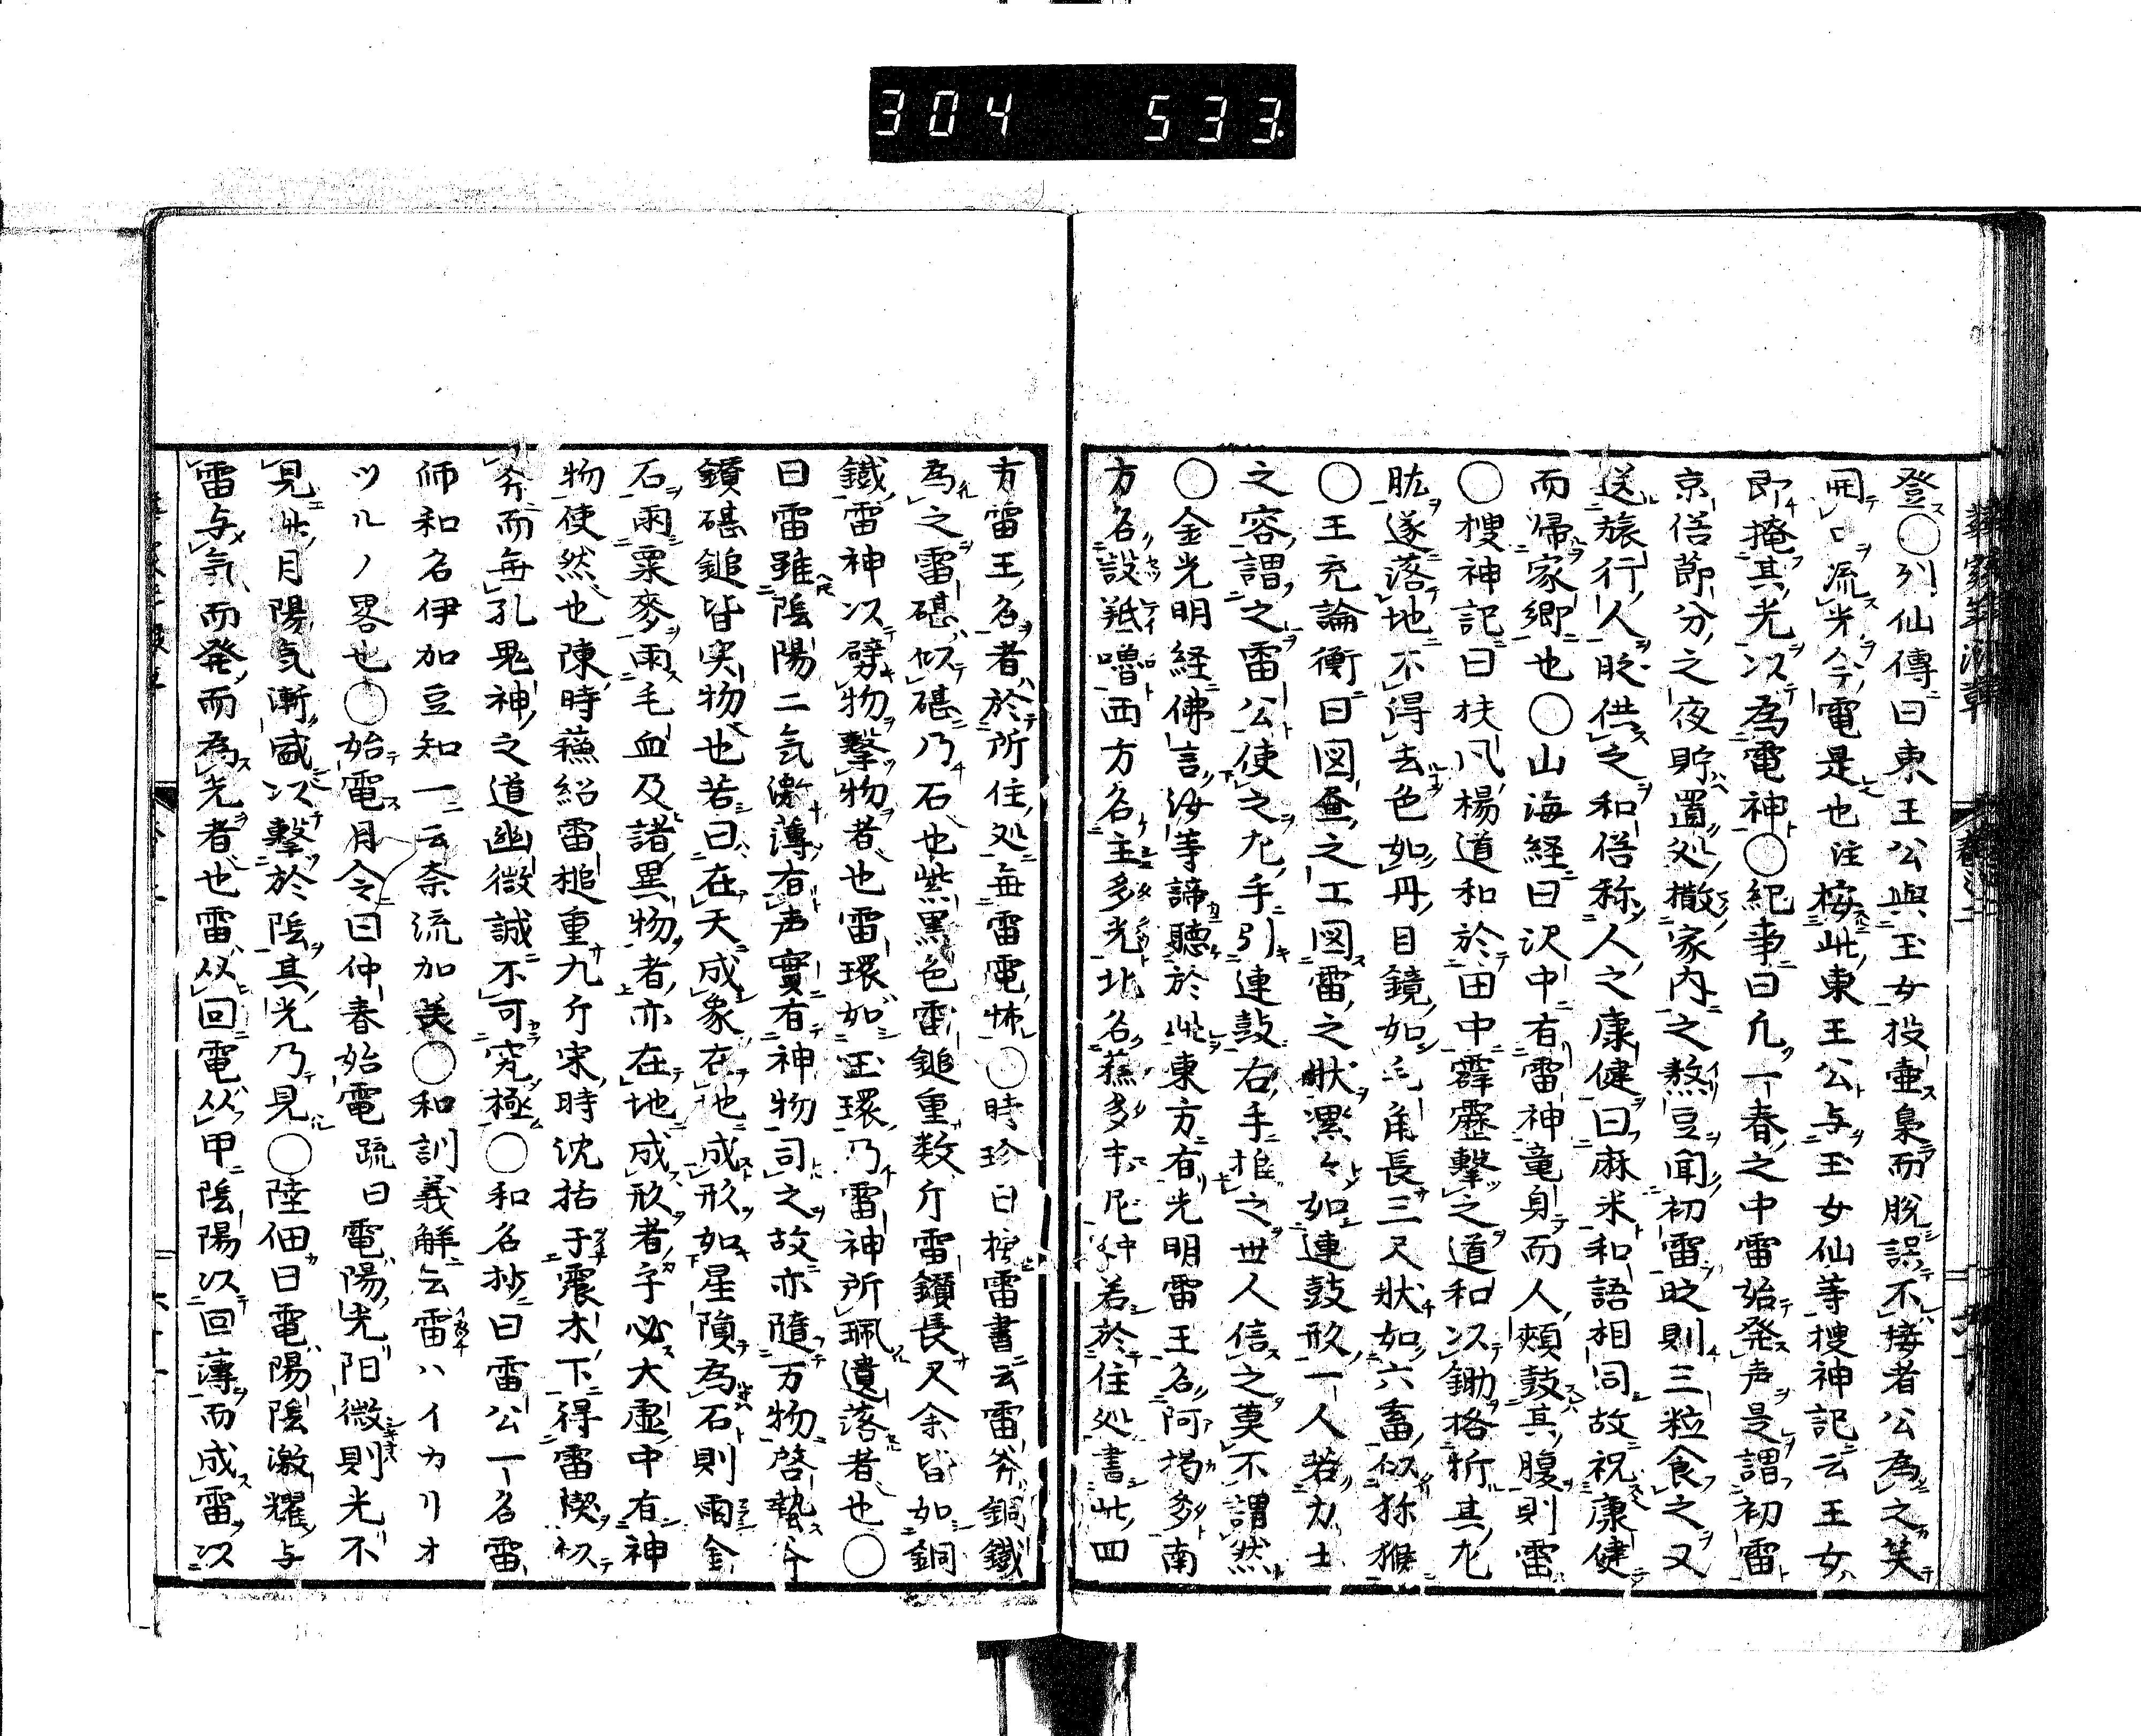 304 533
登○列仙傳曰東王公與玉女投壷梟而脫誤不接者公為之笑
開口流光今電是也注按此東王公与玉女仙等搜神記云王女
即掩其光以為電神○紀事曰凡一春之中雷始発声是謂初雷
京俗節分之夜貯置処撒家内之熬豆聞初雷时則三粒食之又
送旅行人时供之和俗称人之康健曰麻米和語相同故祝康健
而帰家郷也○山海経曰沢中有雷神竜身而人頰鼓其腹則雷
○搜神記曰扶風楊道和於田中霹靂撃之道和以鋤格折其左
肱遂落地不得去色如丹目鏡如毛角長三尺状如六畜似狝猴
○王充論衡曰図畫之工図雷之状漯々如連鼓形一人若力士
之容謂之雷公使之左手引連鼓右手推之世人信之莫不謂然
○金光明経佛言汝等諦聴於此東方有光明雷王名阿掲多南
方名設羝嚕西方名主多光北名蘓多末尼艸若於住処書此四
方雷王名者於所住処無雷電怖○時珍曰按雷書云雷斧銅鐵
為之雷碪似碪乃石也紫黒色雷鎚重数斤雷鑽長尺余皆如銅
鐵雷神以劈物撃物者也雷環如玉環乃雷神所珮遺落者也○
曰雷雖陰陽二気激薄有声實有神物司之故亦隨万物啓蟄今
鑽碪鎚皆実物也若曰在天成象在地成形如星隕為石則雨金
石雨粟麥雨毛血及諸異物者亦在地成形者乎必大虚中有神
物使然也陳時蘓紹雷槌重九斤宋時沈括于震木下得雷楔似
斧而無孔鬼神之道幽微誠不可究極○和名抄曰雷公一名雷
師和名伊加豆知一云奈流加美○和訓義解云雷ハイカリオ
ツルノ畧也○始電月令曰仲春始電疏曰電陽光陽微則光不
見此月陽気漸盛以撃於陰其光乃見○陸佃曰電陽陰激耀与
雷与気而発而為光者也雷从回電从甲陰陽以回薄而成雷以